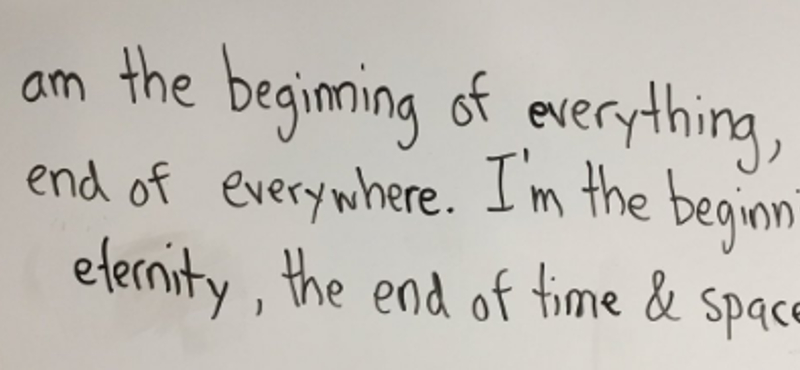 am the beginning of everything,
end of everywhere. I'm the beginn
eternity, the end of time & space